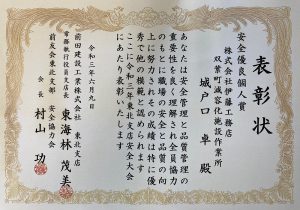 表彰状
安全優良個人賞
株式会社伊藤工務店
双葉町減容化施設作業所
城戸口 卓 殿
あなたは安全管理と品質管理の
重要性を良く理解され全員協力
のもとに職場の安全と品質の向
上に努力されその成績は特に優
秀で他の模範と認められます
ここに令和三年東北支店安全大会
にあたり表彰いたします
令和三年六月九日
前田建設工業株式会社 東北支店
常務執行役員支店長 東海林 茂美
前友会東北支部 安全協力会
会長 村山 功